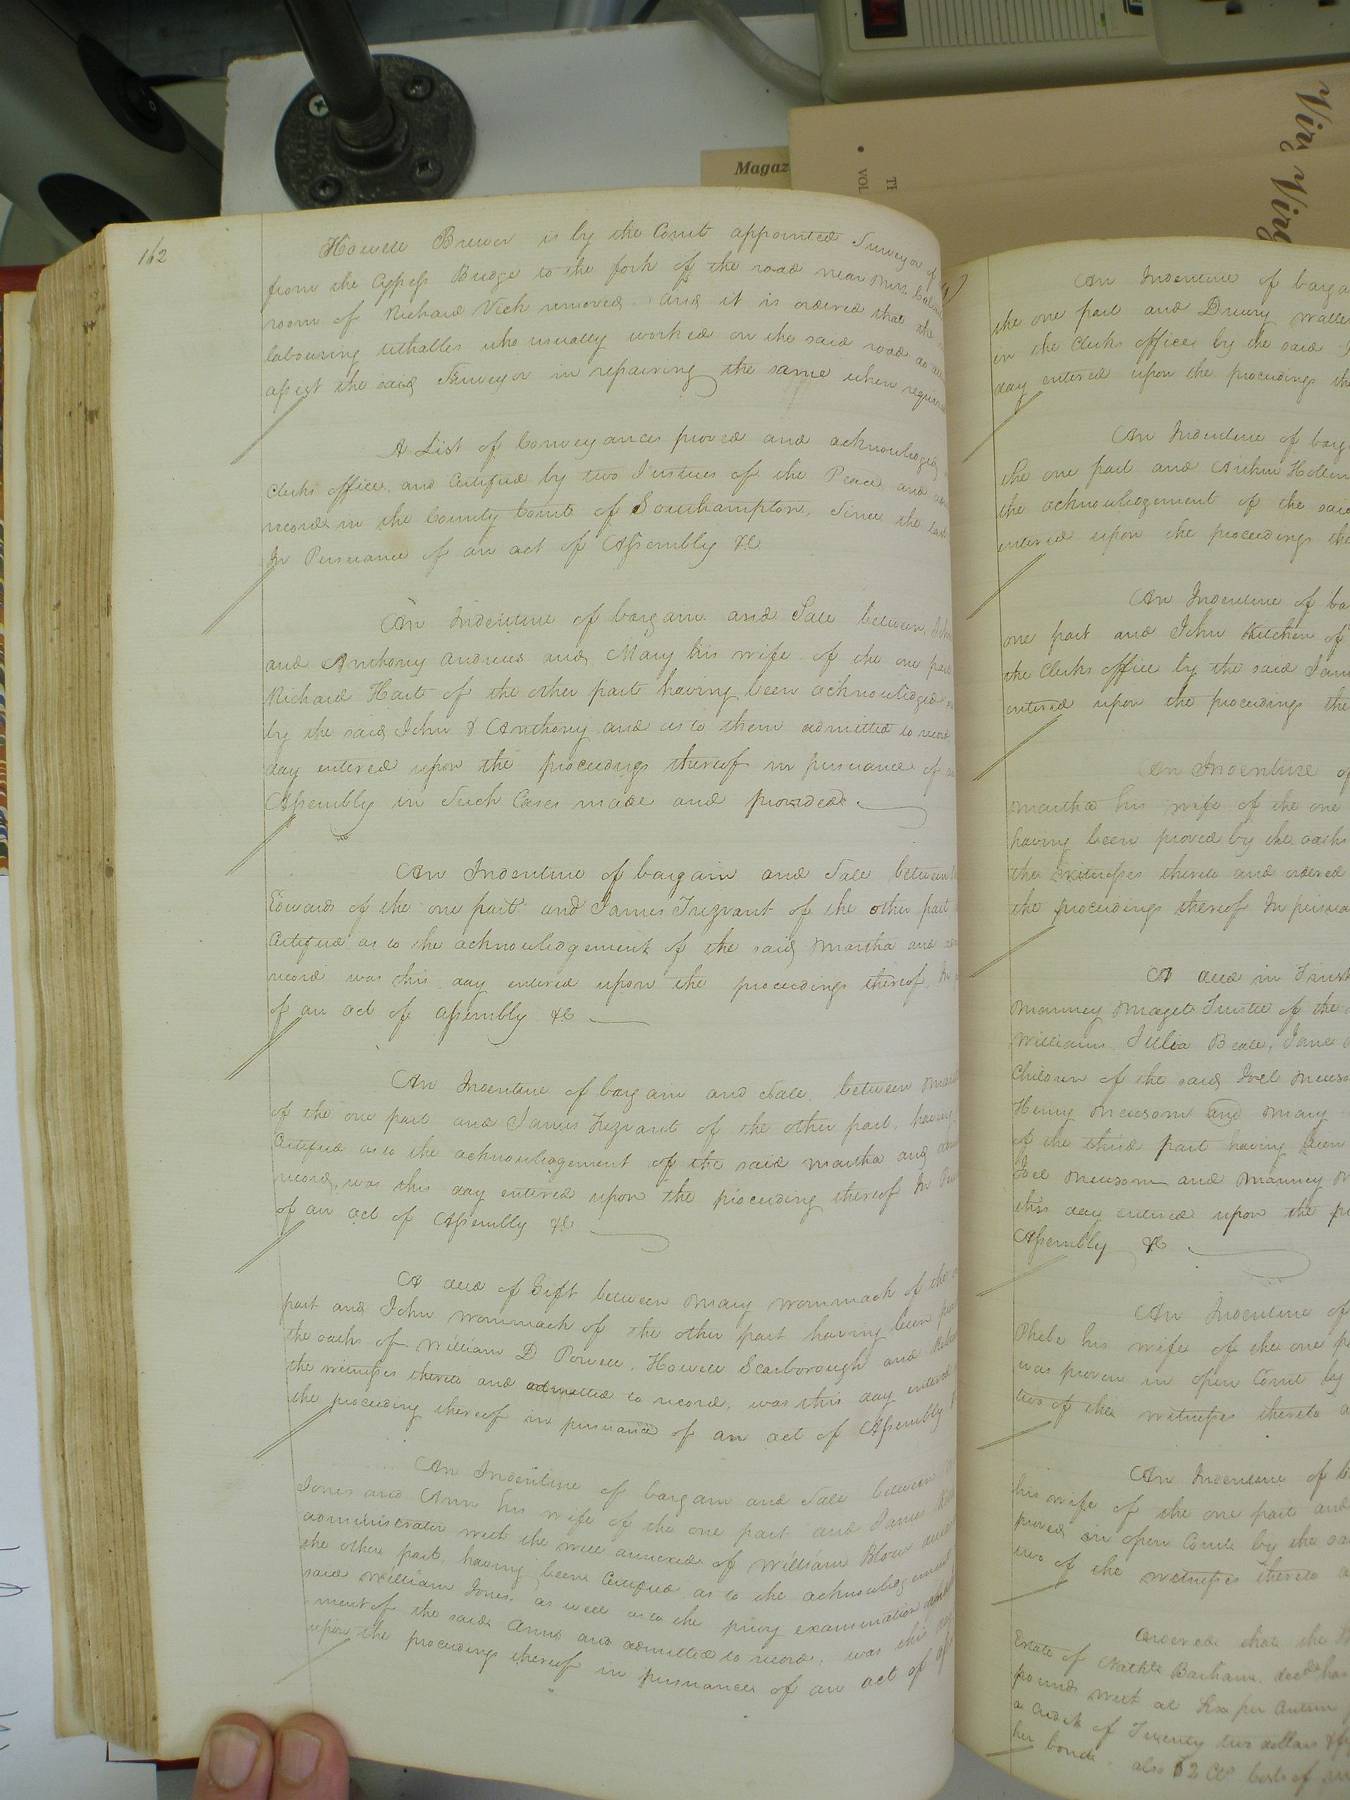 162
Howell Brewer is by the Court appointed Surveyor of
from the Cypress Bridge to the fork of the road near Mrs.
room of Richard Vick removed. And it is ordered that the
labouring tithables who usually worked on the said road do
assist the said Surveyor in repairing the same when required
A List of Conveyances proved and acknowledged
Clerks office, and Certified by two Justices of the Peace and
record in the County Court of Southampton, Since the last
In Pursuance of an act of Assembly &C
An Indenture of bargain and Sale between John
and Anthony Andrews and Mary his wife of the one part
Richard Hart of the other part having been acknowledged
by the said John & Anthony and as to them admitted to record
day entered upon the proceedings thereof in pursuance of
Assembly in Such Cases made and provided.
An Indenture of bargain and Sale between
Edwards of the one part and James Trezvant of the other part
Certified as to the acknowledgement of the said Martha and
record was this day entered upon the proceedings thereof. In
of an act of assembly &C
An Indenture of bargain and Sale between
of the one part and James Trezvant of the other part, having
Certified as to the acknowledgement of the said Martha and
record, was this day entered upon the proceeding thereof In
of an act of Assembly &C
A deed of Gift between Mary Wommack of the
part and John Wommack of the other part having been
the oaths of William D Powell, Howell Scarborough and
the witnesses thereto and admitted to record, was this day entered
the proceeding thereof in pursuance of an act of Assembly
An Indenture of bargain and Sale between
Jones and Ann his wife of the one part and James
administrator with the will annexed of William Blow
the other part, having been Certified as to the acknowledgement
said William Jones, as well as to the privy examination
ment of the said Ann and admitted to record, was this
upon the proceedings thereof in pursuance of an act of
An Indenture of
the one part and Drewry
in the Clerks office by the said
day entered upon the proceedings
An Indenture of
the one part and Arthur
the acknowledgement of the said
entered upon the proceedings
An Indenture of
one part and John Kitchen of
the Clerks office by the said
entered upon the proceedings the
An Indenture of
Martha his wife of the one
having been proved by the oaths
the witnesses thereto and ordered
the proceedings thereof In
A deed in Trust
Manney Maget Trustee of the
Williams, Julia Beale, Jane
Children of the said Joel Newsom
Henry Newsom and Mary
of the third part having been
Joel Newsom and Manney
this day entered upon the
Assembly &C
An Indenture of
Phebe his wife of the one
was proven in open Court by
two of the witnesses thereto
An Indenture of
his wife of the one part and
proved in open Court by the
two of the witnesses thereto
Ordered that the
Estate of Barham decd has
pounds at per
a of Twenty two dollars
her bond. also 62
Magaz
VOL